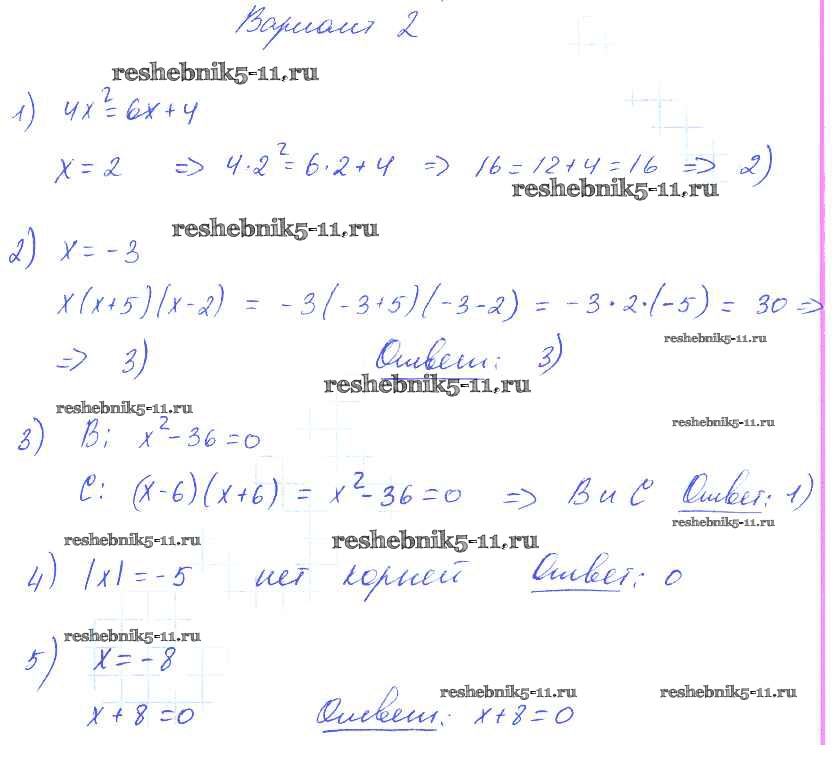 Вариант 2
reshebnik5-11.ru
1) 4x² = 6x + 4
x = 2 => 4·2² = 6·2 + 4 => 16 = 12 + 4 = 16 => 2)
reshebnik5-11.ru
reshebnik5-11.ru
2) x = -3
x(x+5)(x-2) = -3(-3+5)(-3-2) = -3·2·(-5) = 30 =>
reshebnik5-11.ru
=> 3) Ответ: 3)
reshebnik5-11.ru
reshebnik5-11.ru
reshebnik5-11.ru
3) B: x² - 36 = 0
C: (x-6)(x+6) = x² - 36 = 0 => B и C Ответ: 1)
reshebnik5-11.ru
reshebnik5-11.ru
reshebnik5-11.ru
4) |x| = -5 нет корней Ответ: 0
reshebnik5-11.ru
5) x = -8
reshebnik5-11.ru
reshebnik5-11.ru
x + 8 = 0 Ответ: x + 8 = 0